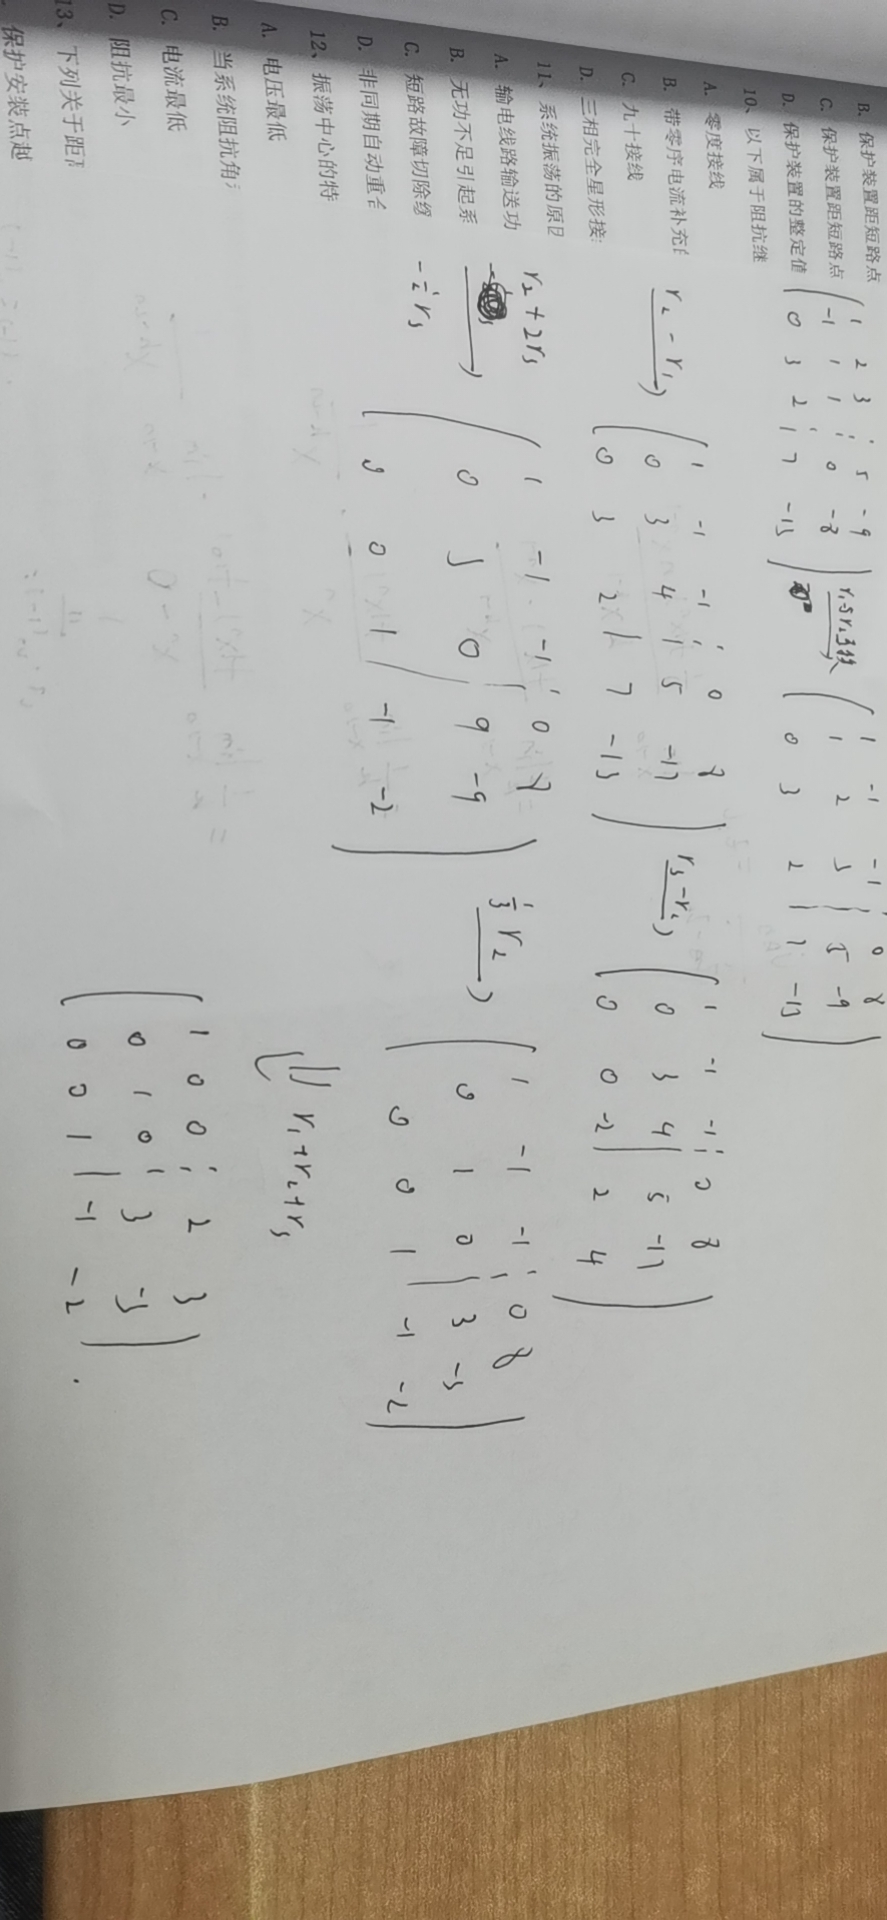 B. 保护装置距短路点
C. 保护装置距短路点
D. 保护装置的整定值
10、以下属于阻抗继
A. 零度接线
B. 带零序电流补充
C. 九十接线
D. 三相完全星形接
11、系统振荡的原
A. 输电线路输送功
B. 无功不足引起系
C. 短路故障切除
D. 非同期自动重
12、振荡中心的特
A. 电压最低
B. 当系统阻抗角
C. 电流最低
D. 阻抗最小
13、下列关于距
保护安装点越
1 2 3 5 -9
-1 1 1 0 -8
0 3 2 7 -13
1 -1 -1 0 8
1 2 3 5 -9
0 3 2 7 -13
r₂ - r₁
1 -1 -1 0 8
0 3 4 5 -17
0 3 2 7 -13
r₃ - r₂
1 -1 -1 0 8
0 3 4 5 -17
0 0 -2 2 4
r₂ + 2r₃
-½ r₃
1 -1 -1 0 8
0 3 0 9 -9
0 0 1 -1 -2
⅓ r₂
1 -1 -1 0 8
0 1 0 3 -3
0 0 1 -1 -2
r₁ + r₂ + r₃
1 0 0 2 3
0 1 0 3 -3
0 0 1 -1 -2